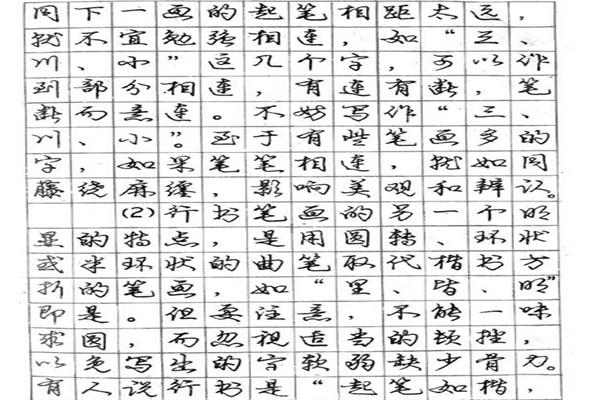 同下一画的起笔相距太远，
就不宜勉强相连，如“三、
川、小”这几个字，可以作
到部分相连，有连有断，笔
断而意连。不妨写作“三、
川、小”。至于有些笔画多的
字，如果笔笔相连，就如同
藤绕麻缠，影响美观和辨认。
(2)行书笔画的另一个明
显的特点，是用圆转、环状
或半环状的曲笔取代楷书方
折的笔画，如“里、皆、明”
即是。但要注意，不能一味
求圆，而忽视适当的顿挫，
以免写生的字软弱缺少骨力。
有人说行书是“起笔如楷，